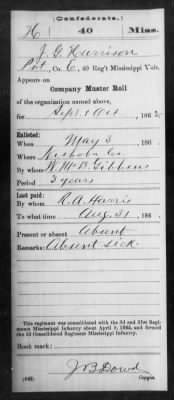 (Confederate.)
H 40 Miss.
J. G. Harrison
Pvt, Co. E, 40 Reg't Mississippi Vols.
Appears on
Company Muster Roll
of the organization named above,
for Sept. & Oct, 186
Enlisted:
When May 3, 186
Where Neshoba Co.
By whom W. McD. Gibbens
Period 3 years
Last paid:
By whom R. A. Harris
To what time Aug. 31, 186
Present or absent Absent
Remarks: Absent sick
This regiment was consolidated with the 3d and 31st Regiments Mississippi Infantry about April 9, 1865, and formed the 3d Consolidated Regiment Mississippi Infantry.
Book mark:
J B Dowd
(642) Copyist.